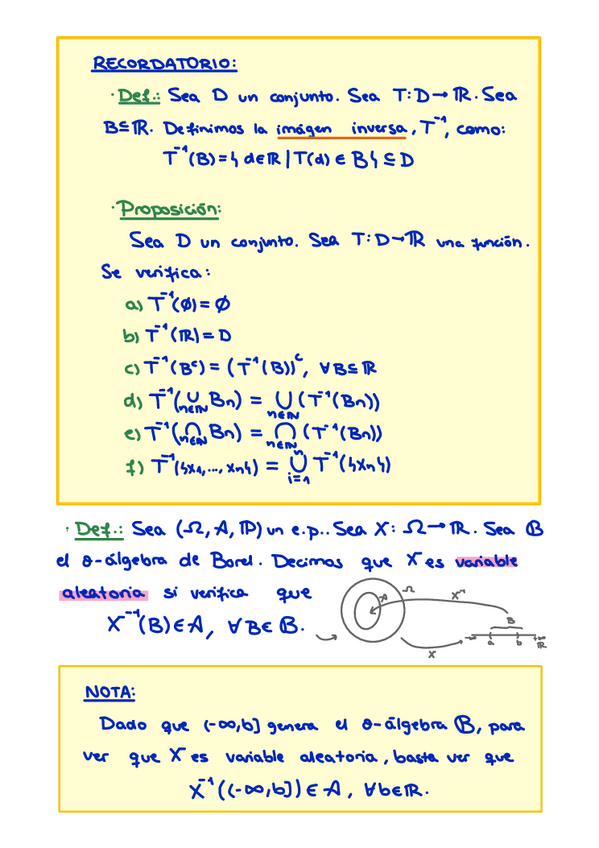 RECORDATORIO:
· Def.: Sea D un conjunto. Sea T: D → ℝ. Sea
B ⊆ ℝ. Definimos la imágen inversa, T⁻¹, como:
T⁻¹(B) = { d ∈ ℝ | T(d) ∈ B } ⊆ D
· Proposición:
Sea D un conjunto. Sea T: D → ℝ una función.
Se verifica:
a) T⁻¹(∅) = ∅
b) T⁻¹(ℝ) = D
c) T⁻¹(Bᶜ) = (T⁻¹(B))ᶜ, ∀B ⊆ ℝ
d) T⁻¹(∪_{n∈ℕ} Bn) = ∪_{n∈ℕ} (T⁻¹(Bn))
e) T⁻¹(∩_{n∈ℕ} Bn) = ∩_{n∈ℕ} (T⁻¹(Bn))
f) T⁻¹({x₁, ..., xn}) = ∪_{i=1}^{n} T⁻¹({xn})
· Def.: Sea (Ω, A, ℙ) un e.p.. Sea X: Ω → ℝ. Sea 𝔹
el σ-álgebra de Borel. Decimos que X es variable
aleatoria si verifica que
X⁻¹(B) ∈ A, ∀B ∈ 𝔹.
A Ω X⁻¹ B
a b ℝ
X
NOTA:
Dado que (-∞, b] genera el σ-álgebra 𝔹, para
ver que X es variable aleatoria, basta ver que
X⁻¹((-∞, b]) ∈ A, ∀b ∈ ℝ.